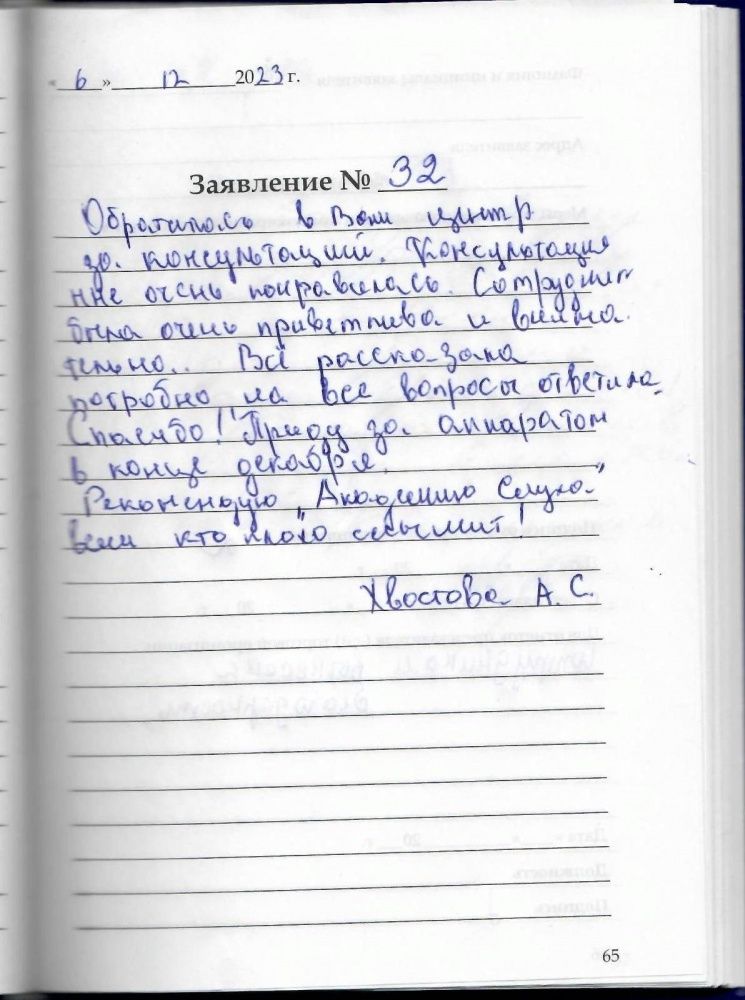 « 6 » 12 2023 г.
Заявление № 32
Обратилась в Ваш центр
за консультаций. Консультация
мне очень понравилась. Сотрудник
была очень приветлива и внима
тельно.. Всё рассказала
потробно на все вопросы ответила.
Спасибо! Приду за аппаратом
в конце декабря.
Рекомендую „Академию Слуха"
всем кто плохо слышит!
Хвостова А. С.
65